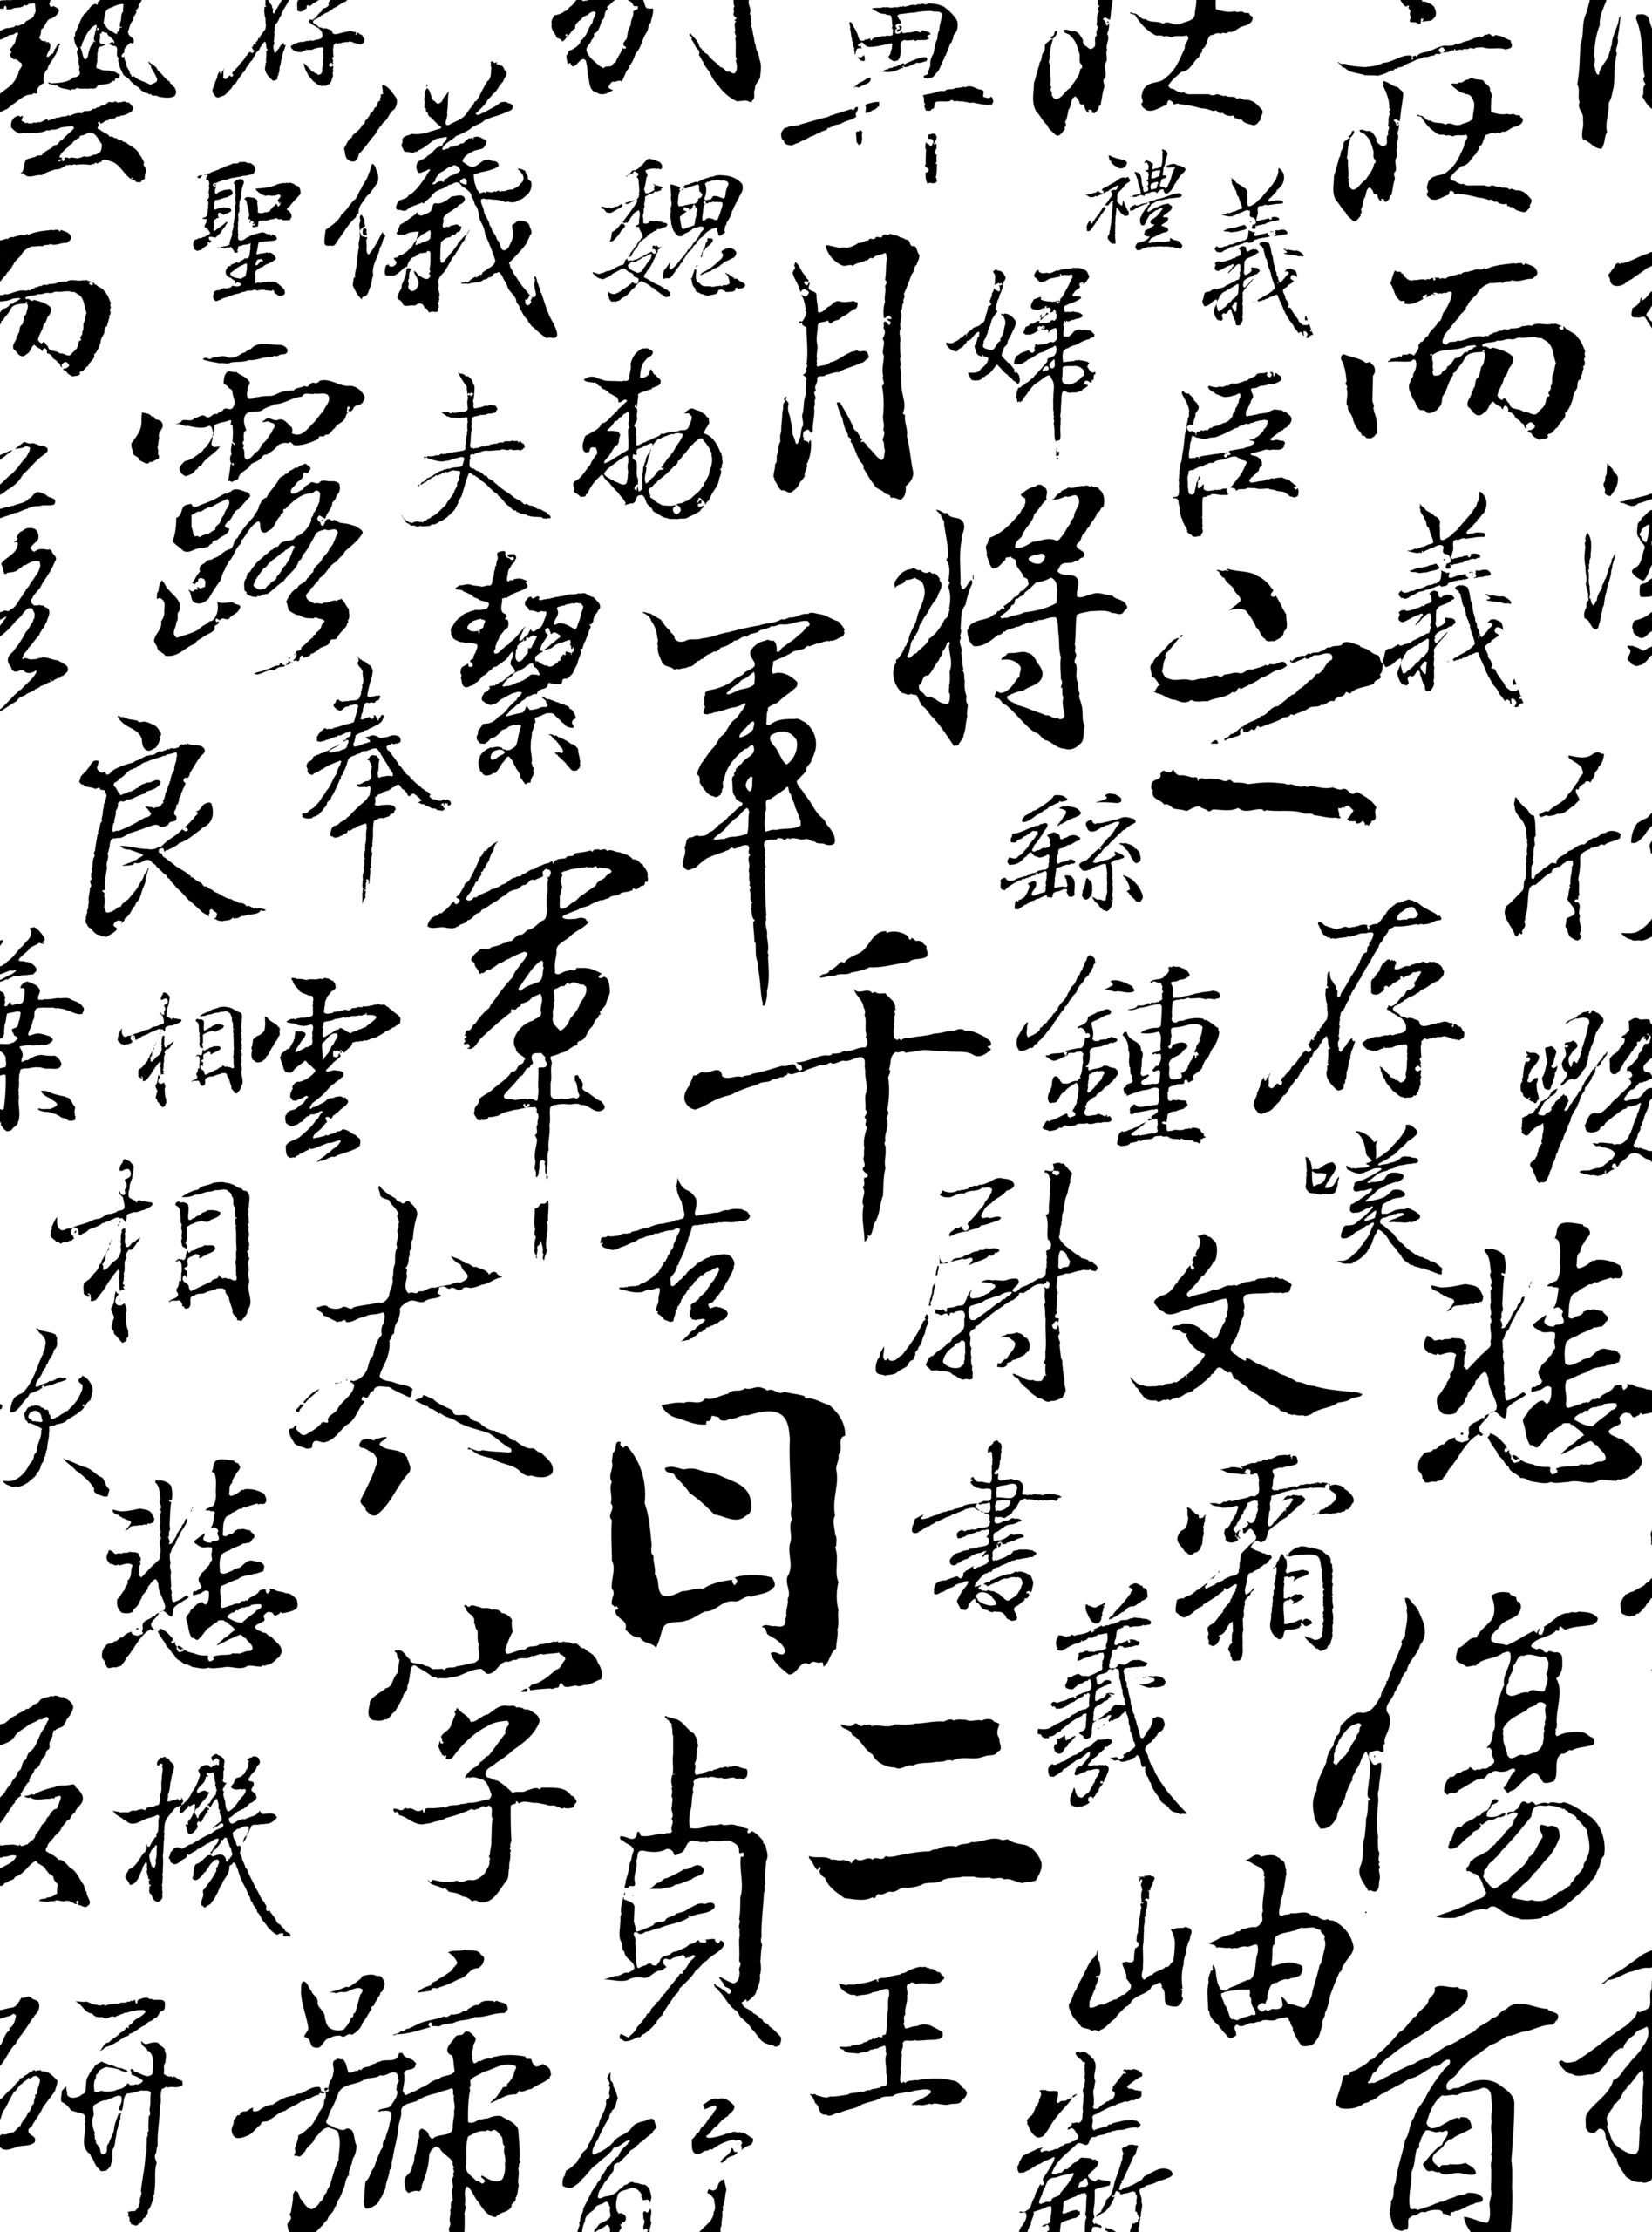 莊而義存嘆悲傷首
禮義臣之一文霜岫
婦將繇鍾尉書羲
月軍千二王
魏勅古日貞
儀夫絜軍太字號
聖露奉雲
存良相相悲機研
藝而葉